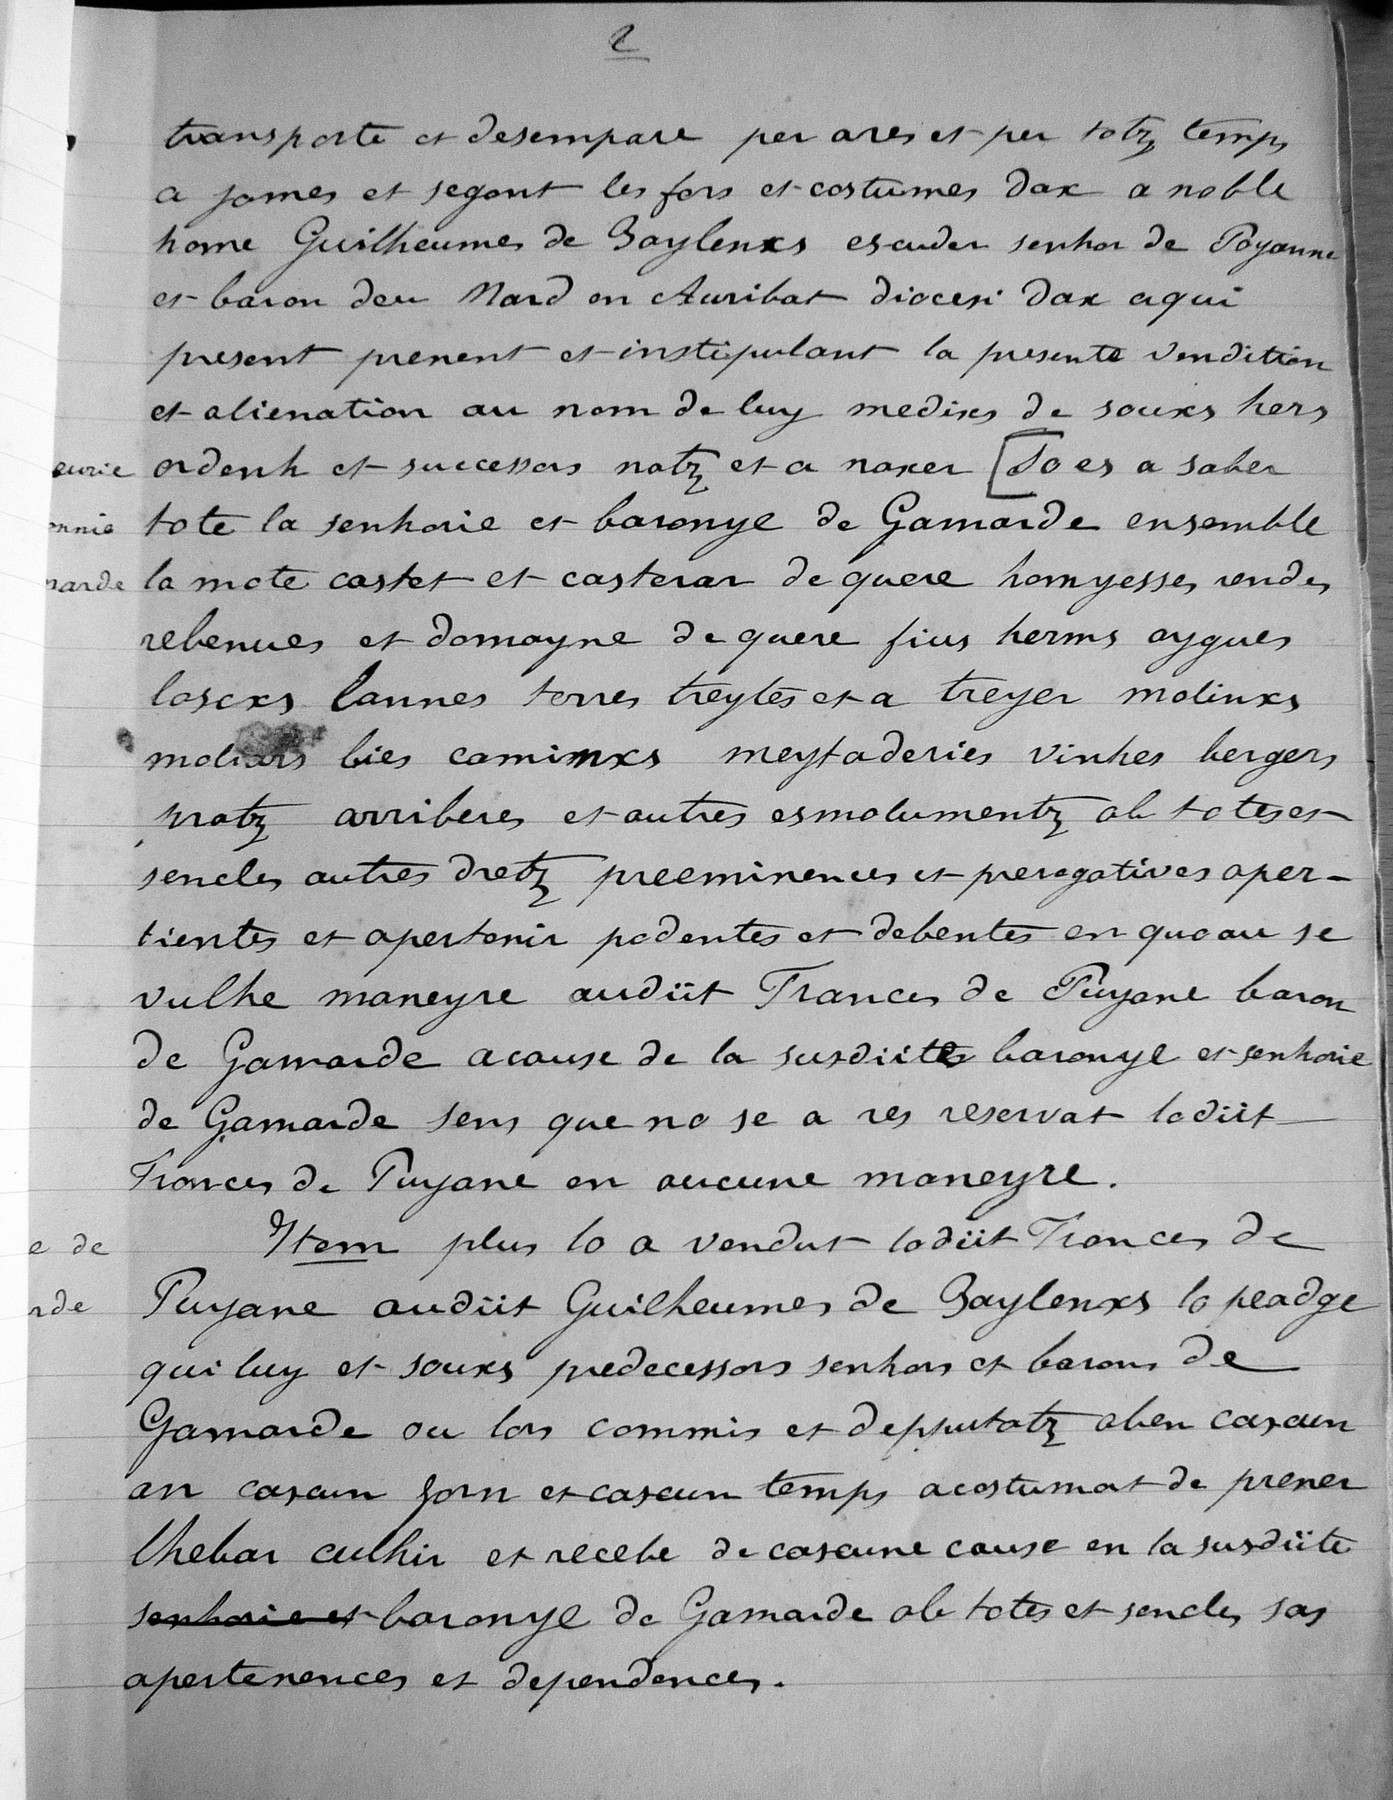 2
transporte et desempare per ares et per totz temps
a james et segont les fors et costumes dax a noble
home Guilheumes de Baylenxs escuder senhor de Poyanne
et baron deu Mard en Auribat diocesi dax aqui
present prenent et instipulant la presente vendition
et alienation au nom de luy medixs de souxs hers
ordenh et successors natz et a naxer [So es a saber
tote la senhorie et baronye de Gamarde ensemble
la mote castet et casterar de quere homyesses rendes
rebenues et domayne de quere fius herms aygues
boscxs lannes terres treytes et a treyer molinxs
moliars bies caminxs meytaderies vinhes bergers
pratz arriberes et autres esmolumentz ab totes et
sencles autres dretz preeminences et prerogatives aper-
tientes et apertenir podentes et debentes en quoau se
vulhe maneyre audiit Frances de Puyane baron
de Gamarde a cause de la susdiite baronye et senhorie
de Gamarde sens que no se a res reservat lodiit
Frances de Puyane en aucune maneyre.
Item plus lo a vendut lodiit Frances de
Puyane audiit Guilheumes de Baylenxs lo peadge
qui luy et souxs predecessors senhors et barons de
Gamarde ou lors commis et depputatz aben cascun
an cascun jorn et cascun temps acostumat de prener
lhebar culhir et recebe de cascune cause en la susdiite
senhorie et baronye de Gamarde ab totes et sencles sas
apertenences et dependences.
eurie
onnie
marde
e de
rde